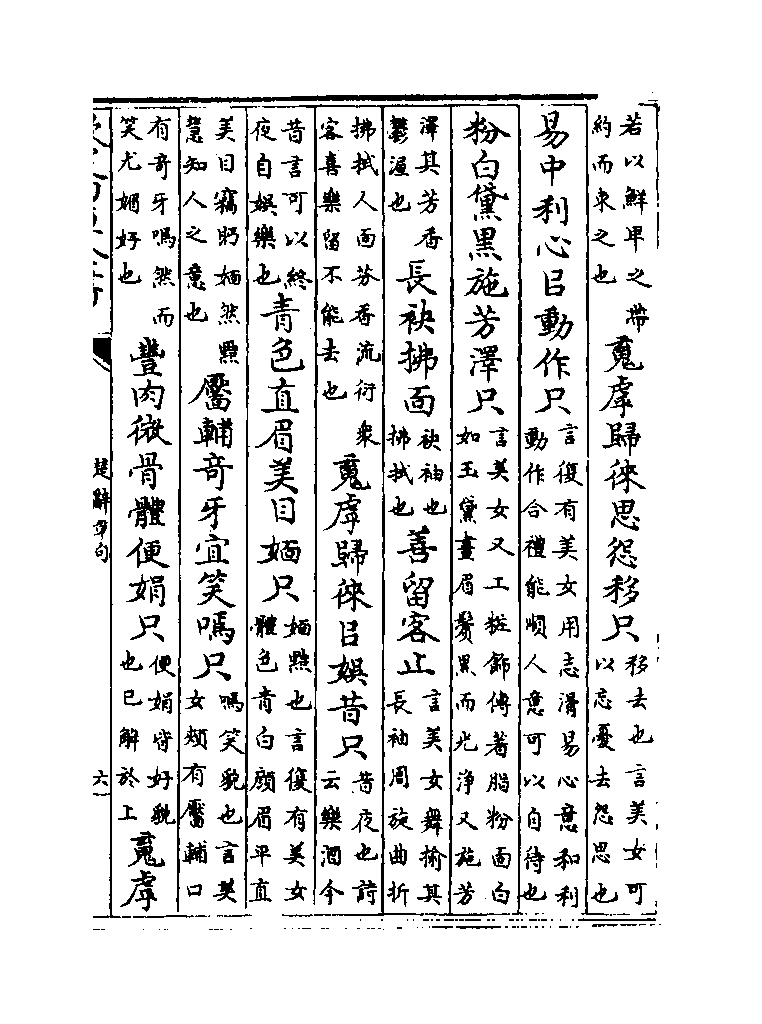 若以鮮卑之帶約而束之也䰟虖歸徠思怨移只移去也言美女可以忘憂去怨思也
易中利心㠯動作只言復有美女用志滑易心意和利動作合禮能順人意可以自待也
粉白黛黑施芳澤只言美女又工粧飾傅著脂粉面白如玉黛畫眉鬢黑而光淨又施芳
澤其芳香鬱渥也長袂拂面袂袖也拂拭也善留客止言美女舞揄其長袖周旋曲折
拂拭人面芬香流衍衆客喜樂留不能去也䰟虖歸徠㠯娛昔只昔夜也詩云樂酒今
昔言可以終夜自娛樂也青色直眉美目媔只媔黠也言復有美女體色青白顔眉平直
美目竊眄媔然黠慧知人之意也靨輔奇牙宜笑嘕只嘕笑貌也言美女頰有靨輔口
有奇牙嘕然而笑尤媚好也豐肉微骨體便娟只便娟皆好貌也已解於上䰟虖
楚辭章句
六